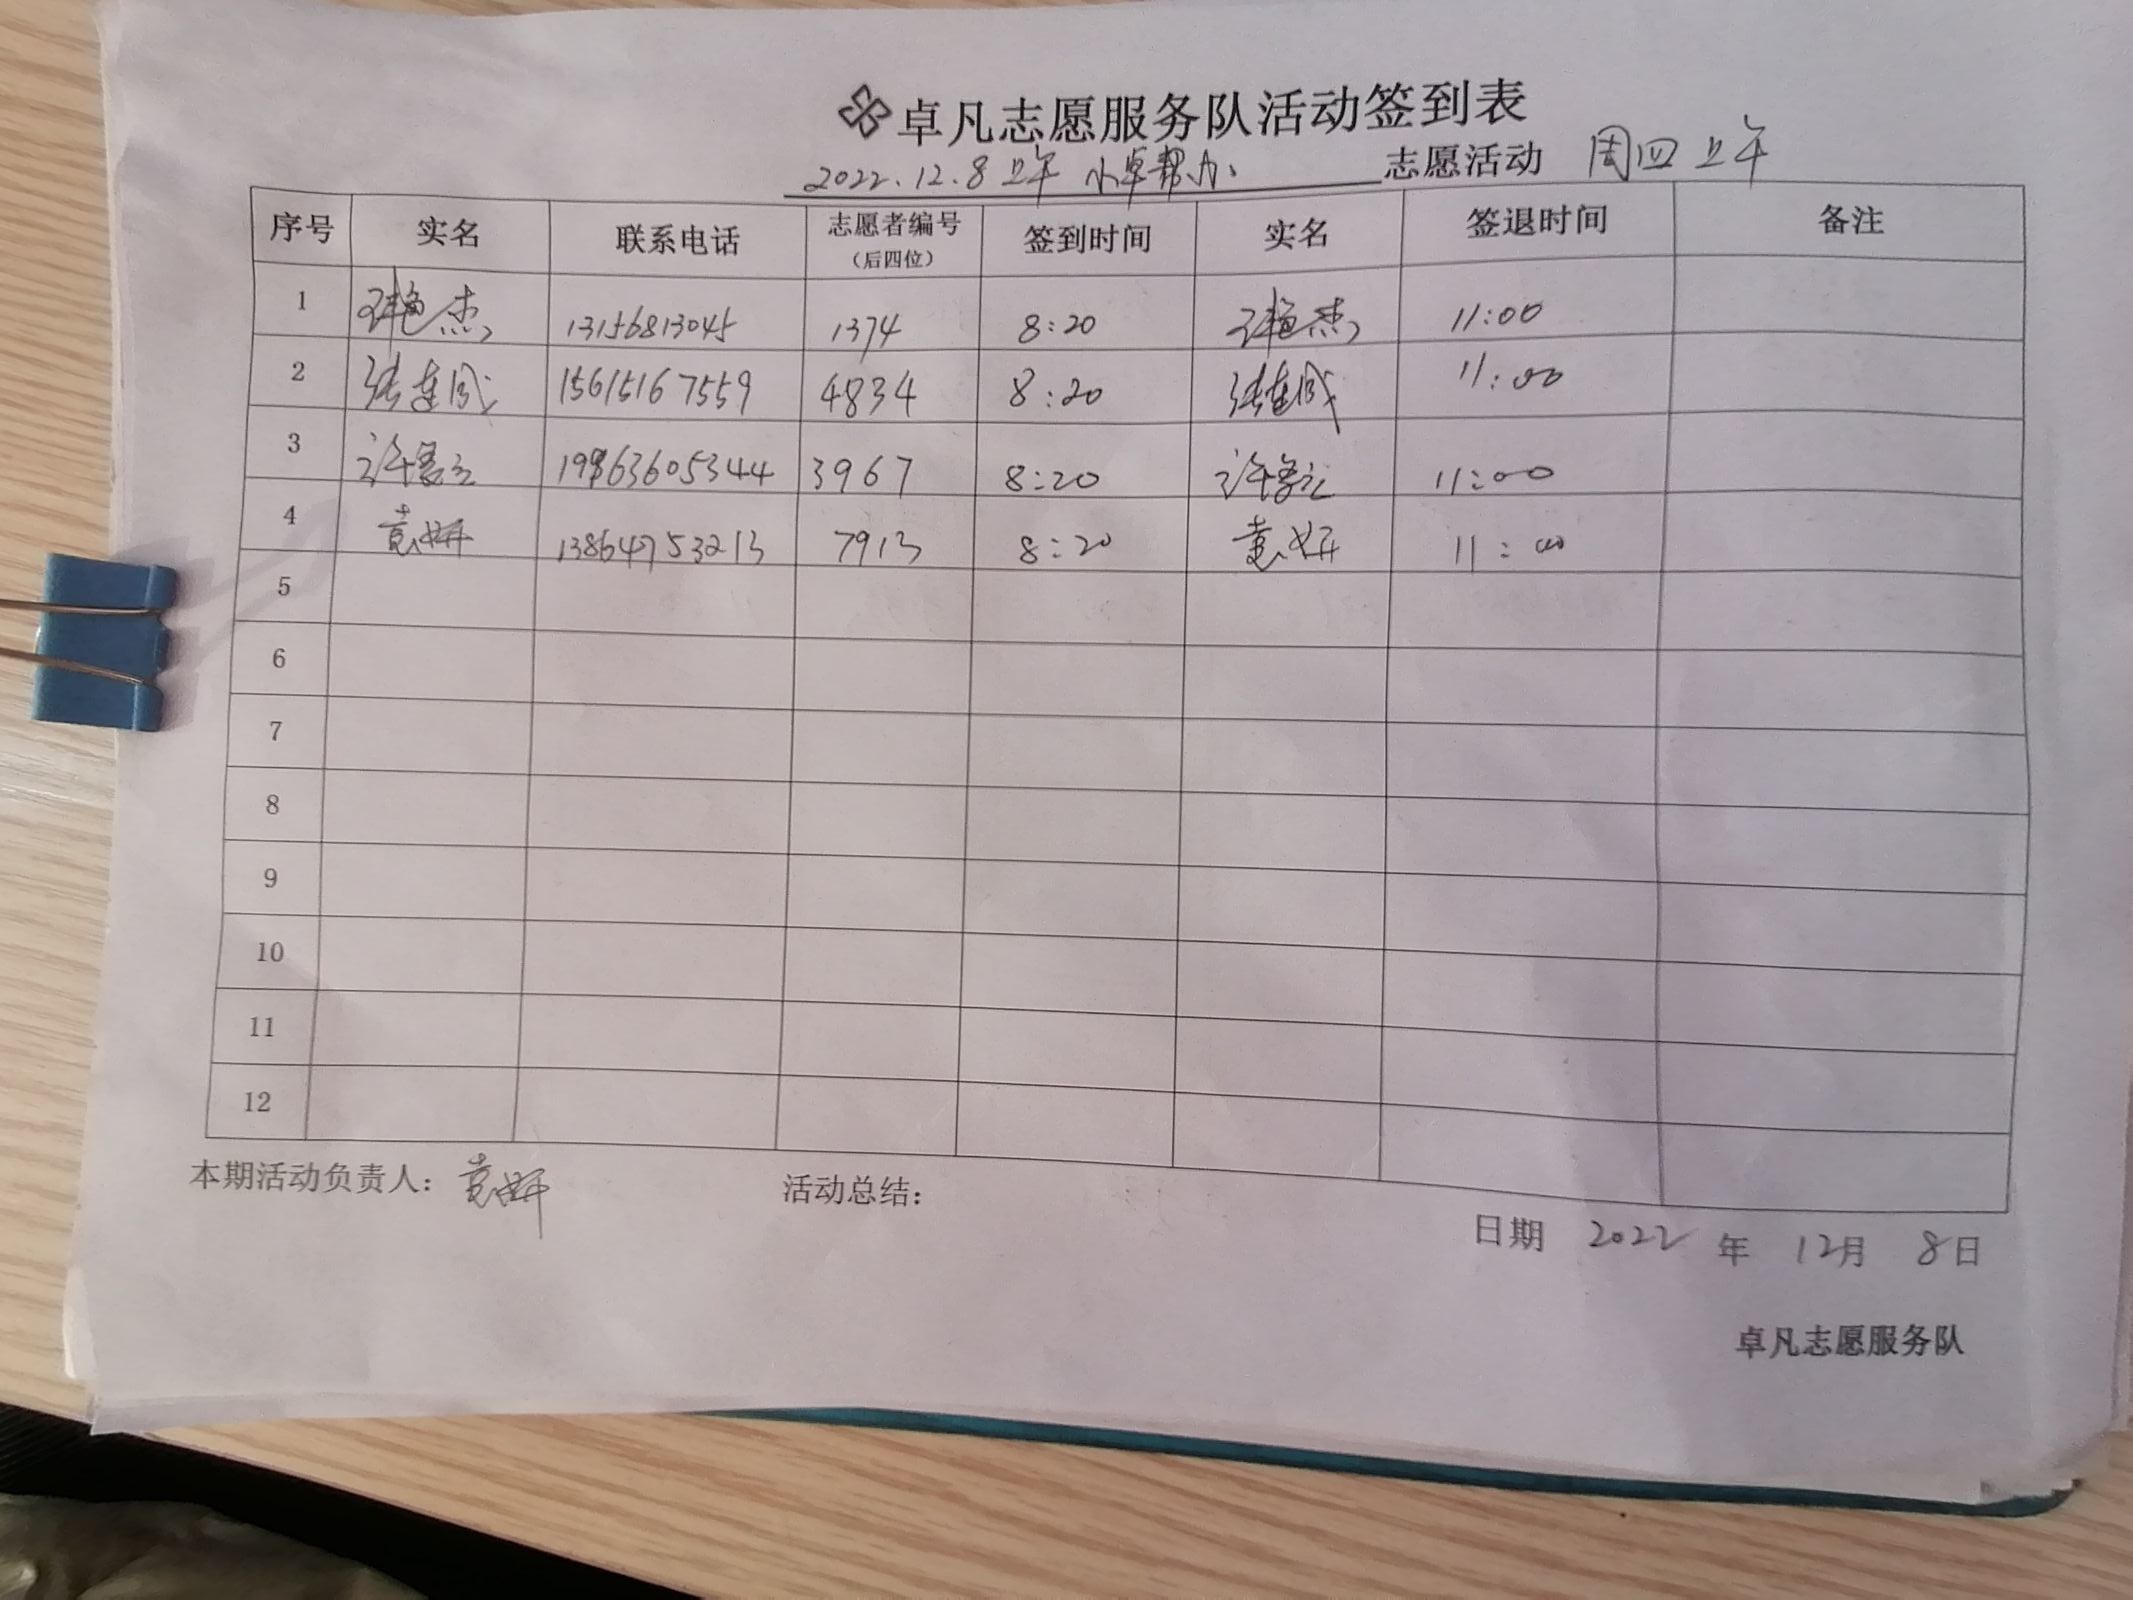 卓凡志愿服务队活动签到表
2022.12.8 上午 小卓帮办 志愿活动 周四上午
序号 实名 联系电话 志愿者编号（后四位） 签到时间 实名 签退时间 备注
1 13156813045 1374 8:20 11:00
2 15615167559 4834 8:20 11:00
3 19863605344 3967 8:20 11:00
4 袁妍 13864753213 7913 8:20 袁妍 11:00
5
6
7
8
9
10
11
12
本期活动负责人：袁妍 活动总结：
日期 2022 年 12月 8日
卓凡志愿服务队